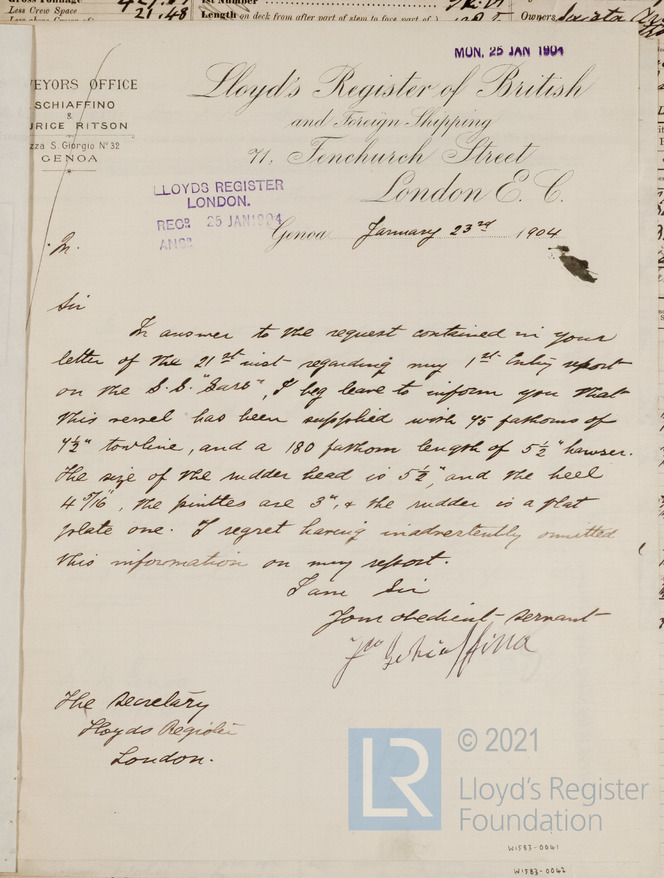 Less Crew Space 21.48
Length on deck from after part of stem to fore part of
Owners
MON. 25 JAN 1904
VEYORS OFFICE
SCHIAFFINO
&
URICE RITSON
zza S. Giorgio Nº 32
GENOA
Lloyd's Register of British
and Foreign Shipping
71, Fenchurch Street
London E. C.
LLOYDS REGISTER
LONDON.
RECD. 25 JAN 1904
ANSD.
Genoa January 23rd 1904
Sir
In answer to the request contained in your
letter of the 21st inst regarding my 1st Entry report
on the S.S. "Sarb", I beg leave to inform you that
this vessel has been supplied with 45 fathoms of
7½" towline, and a 180 fathom length of 5½" hawser.
The size of the rudder head is 5½", and the heel
4 5/16", the pintles are 3", & the rudder is a flat
plate one. I regret having inadvertently omitted
this information on my report.
I am Sir
Your obedient servant
Schiaffino
The Secretary
Lloyds Register
London.
LR
© 2021
Lloyd's Register
Foundation
W1583-0041
W1583-0042